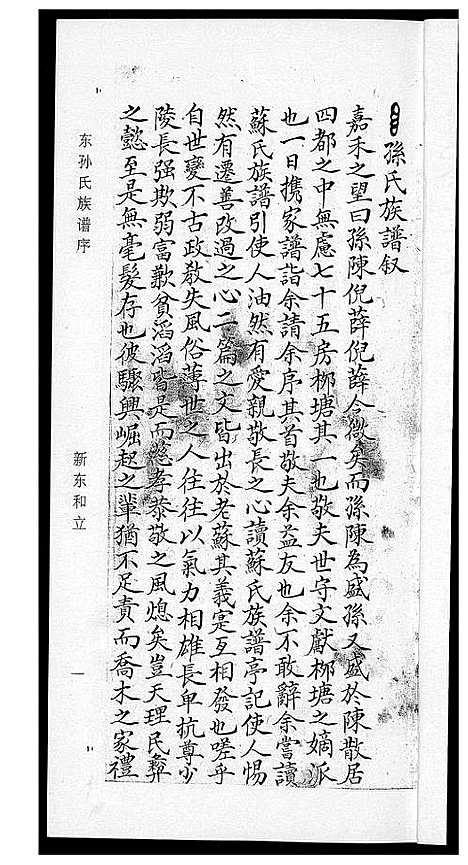 孫氏族譜叙
嘉禾之望曰孫陳倪薛倪薛今微矣而孫陳為盛孫又盛於陳散居
四都之中無慮七十五房栁塘其一也敬夫世守文獻栁塘之嫡派
也一日携家譜詣余請余序其首敬夫余益友也余不敢辭余嘗讀
蘇氏族譜引使人油然有愛親敬長之心讀蘇氏族譜亭記使人惕
然有遷善改過之心二篇之文皆出於老蘇其義寔互相發也嗟乎
自世變不古政敎失風俗薄世之人往往以氣力相雄長卑抗尊少
陵長强欺弱富歉貧滔滔皆是而慈孝恭敬之風熄矣豈天理民彛
之懿至是無毫髮存也彼驟興崛起之軰猶不足責而喬木之家禮
东孙氏族谱序
新东和立
一